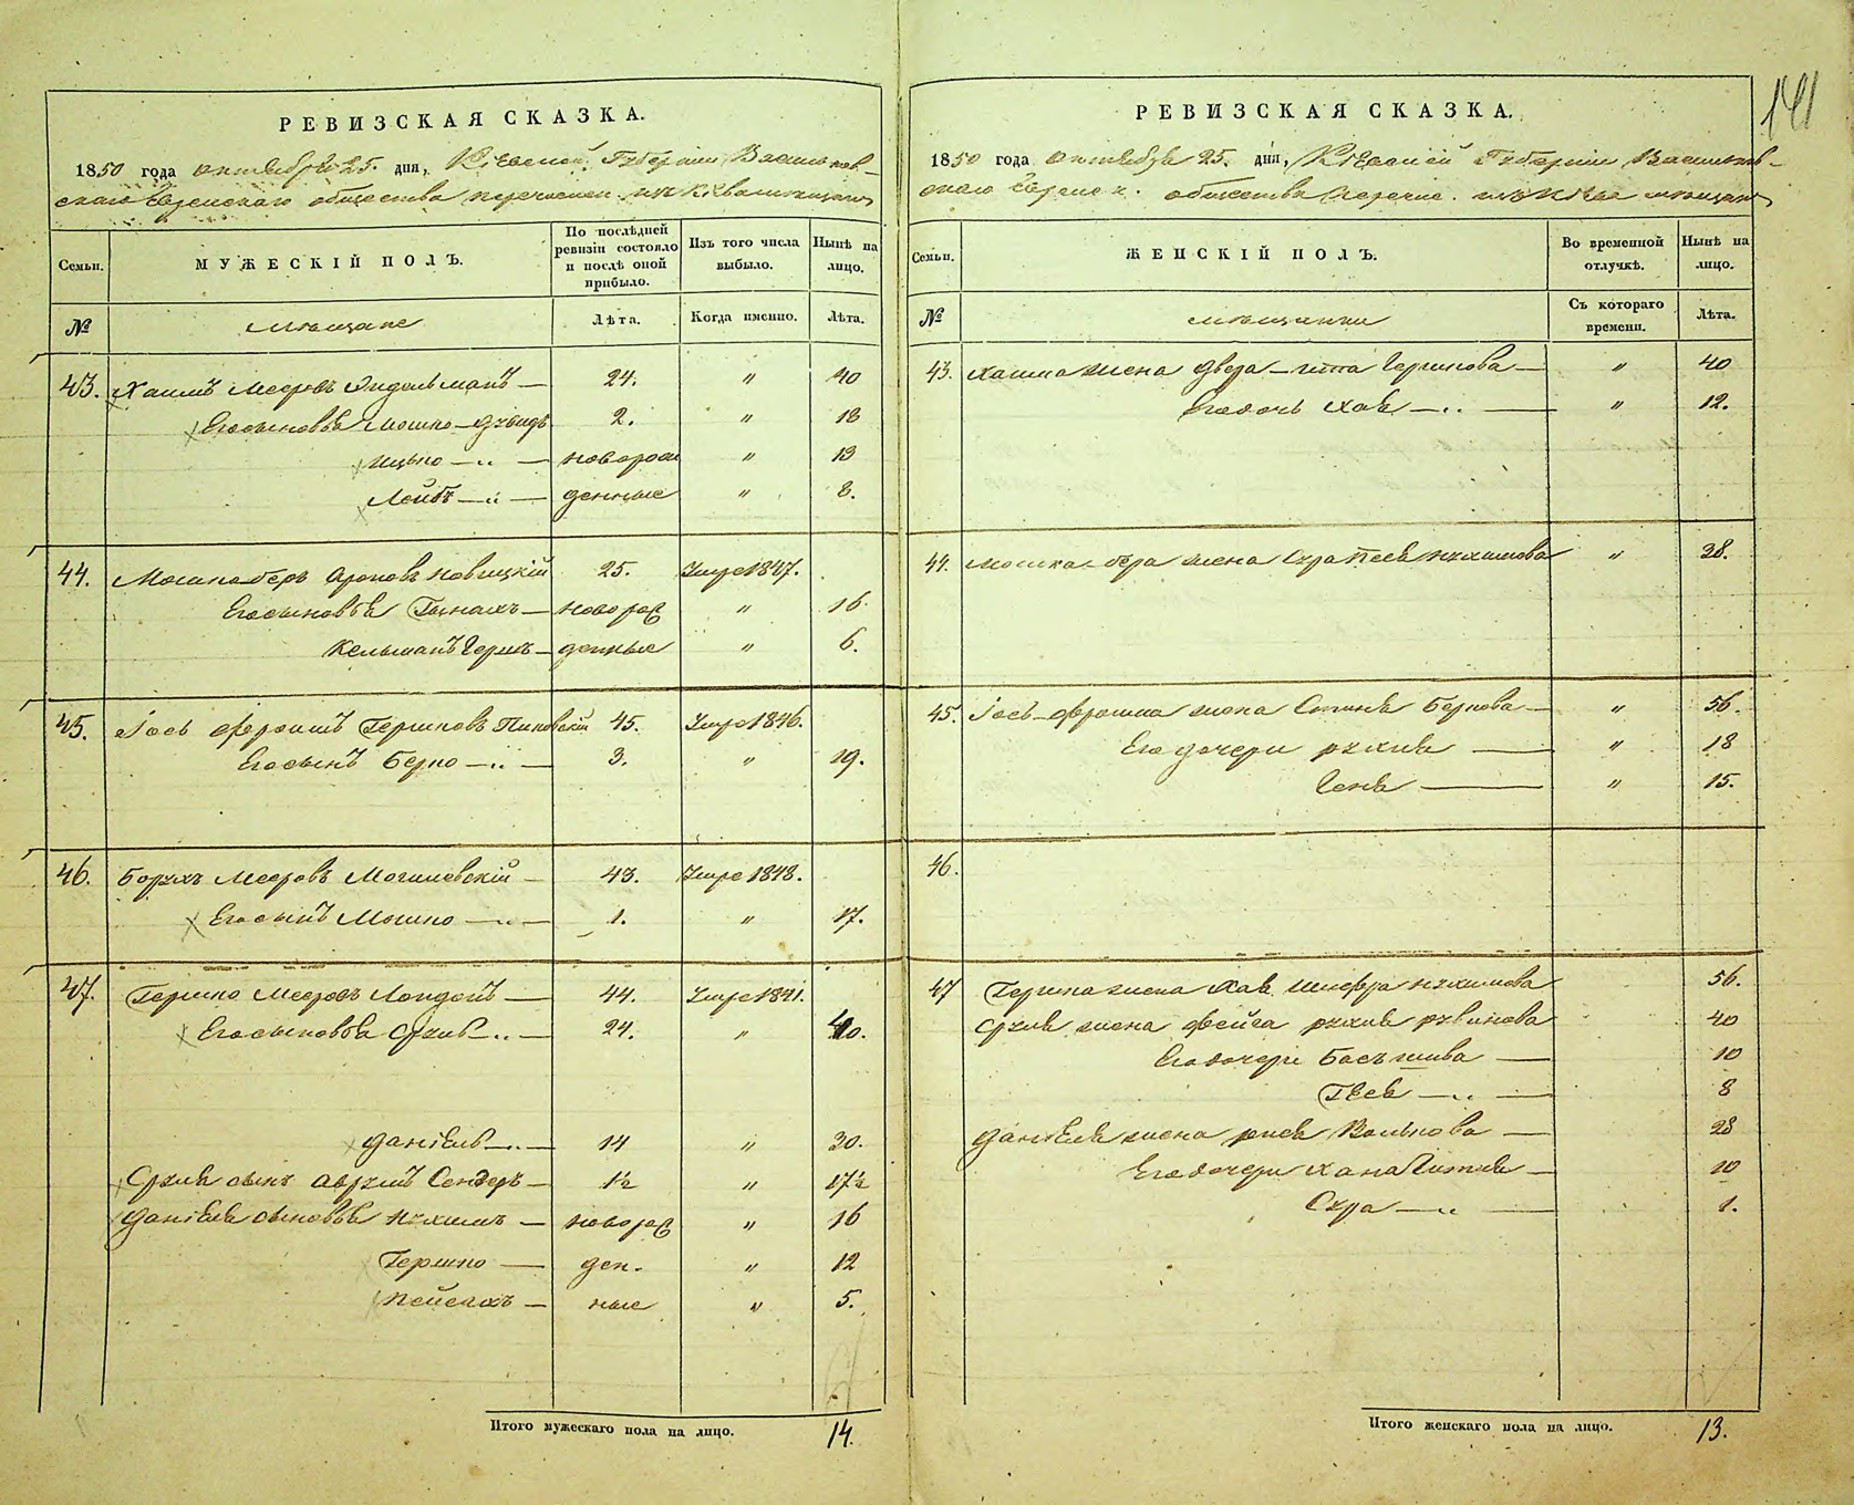 141
РЕВИЗСКАЯ СКАЗКА.
1850 года октября 25. дня, Кіевской Губерніи Васильков-
скаго Еврейскаго общества перечислен. изъ Кіева мѣщанъ
Семьи.
МУЖЕСКІЙ ПОЛЪ.
По послѣдней ревизіи состояло и послѣ оной прибыло.
Изъ того числа выбыло.
Нынѣ на лицо.
№
мѣщане
Лѣта.
Когда именно.
Лѣта.
43. Хаимъ Мееровъ Эидельманъ — 24. " 40
Его сыновья Мошко-Дувидъ 2. " 18
Ицько — " — новорож " 13
Лейбъ — " — денные " 8.
44. Мошко-беръ Ароновъ Новицкій 25. Умре 1847.
Его сыновья Пинхасъ — новорож " 16.
Кельманъ Герш — денные " 6.
45. Іось Фроимъ Гершковъ Пиковскій 45. Умре 1846.
Его сынъ Берко — " — 3. " 19.
46. Борухъ Мееровъ Могилевскій — 43. Умре 1848.
Его сынъ Мошко — " — 1. " 17.
47. Гершко Мееровъ Лондонъ — 44. Умре 1841.
Его сыновья Сруль — " — 24. " 40.
Даніель — " — 14 " 30.
Сруля сынъ Аврумъ Сендеръ — 1½ " 17½
Даніеля сыновья Нухимъ — новорож " 16
Гершко — ден- " 12
Пейсахъ — ные " 5.
Итого мужескаго пола на лицо. 14.
РЕВИЗСКАЯ СКАЗКА.
1850 года октября 25. дня, Кіевской Губерніи Васильков-
скаго Еврейск. общества перечис. изъ Кіева мѣщанъ
Семьи.
ЖЕНСКІЙ ПОЛЪ.
Во временной отлучкѣ.
Нынѣ на лицо.
№
мѣщанки
Съ котораго времени.
Лѣта.
43. Хаима жена Двера-Гита Гершкова — " 40
Его дочь Хая — " — " 12.
44. Мошка-бера жена Сура Песя Нухимова " 38.
45. Іось-Фроима жена Сприня Беркова — " 56.
Его дочери Рухля — " 18
Геня — " 15.
46.
47 Гершка жена Хая Шифра Нухимова 56.
Сруля жена Фейга Рухля Рувинова 40
Его дочери Басъшива — 10
Песя — " — 8
Даніеля жена Рися Волькова — 28
Его дочери Хана Гитля — 10
Сура — " — 1.
Итого женскаго пола на лицо. 13.